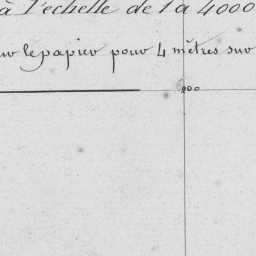 à l'echelle de 1 à 4000
sur le papier pour 4 mètres sur
000